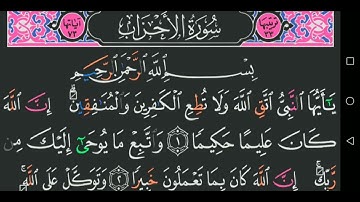 ترتيبها ٣٣ سُورَةُ الْأَحْزَابِ آياتها ٧٣
بِسْمِ اللَّهِ الرَّحْمَٰنِ الرَّحِيمِ
يَٰٓأَيُّهَا النَّبِيُّ اتَّقِ اللَّهَ وَلَا تُطِعِ الْكَٰفِرِينَ وَالْمُنَٰفِقِينَۗ إِنَّ اللَّهَ
كَانَ عَلِيمًا حَكِيمًا ١ وَاتَّبِعْ مَا يُوحَىٰٓ إِلَيْكَ مِن
رَّبِّكَۚ إِنَّ اللَّهَ كَانَ بِمَا تَعْمَلُونَ خَبِيرًا ٢ وَتَوَكَّلْ عَلَى اللَّهِۚ